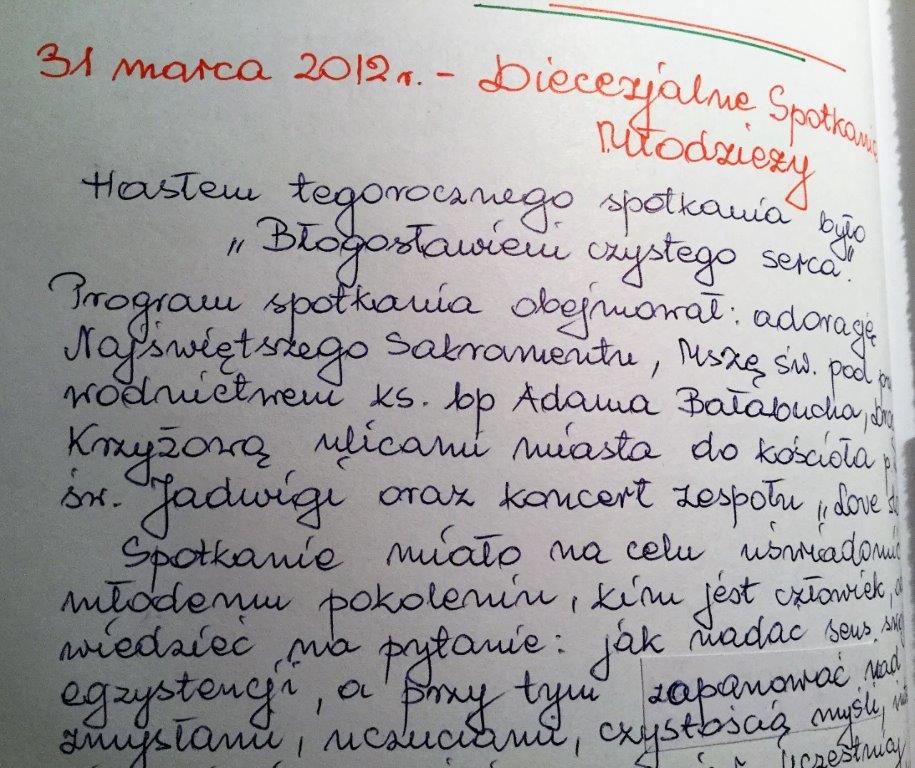 31 marca 2012 r. - Diecezjalne Spotkanie
Młodzieży
Hasłem tegorocznego spotkania było
"Błogosławieni czystego serca".
Program spotkania obejmował: adorację
Najświętszego Sakramentu, Mszę św. pod
wodnictwem ks. bp Adama Bałabucha,
Krzyżową ulicami miasta do kościoła
św. Jadwigi oraz koncert zespołu "Love
Spotkanie miało na celu uświadomić
młodemu pokoleniu, kim jest człowiek,
wiedzieć na pytanie: jak nadać sens
egzystencji, a przy tym zapanować nad
zmysłami, uczuciami, czystością myśli,
uczestnicy